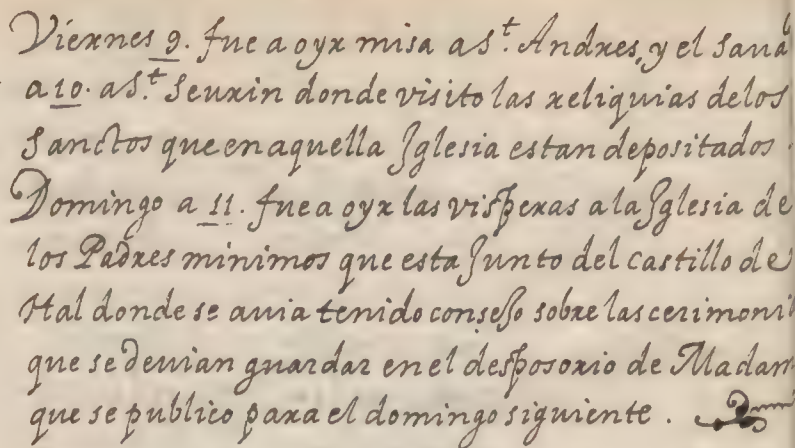 Viernes 9. fue a oyr misa a S.t Andres, y el Sauab
a 10. a S.t Seurin donde visito las reliquias delos
Sanctos que en aquella Iglesia estan depositados.
Domingo a 11. fue a oyr las visperas a la Iglesia de
los Padres minimos que esta Junto del castillo de
Hal donde se auia tenido consejo sobre las cerimoni
que se deuian guardar en el desposorio de Madam
que se publico para el domingo siguiente.